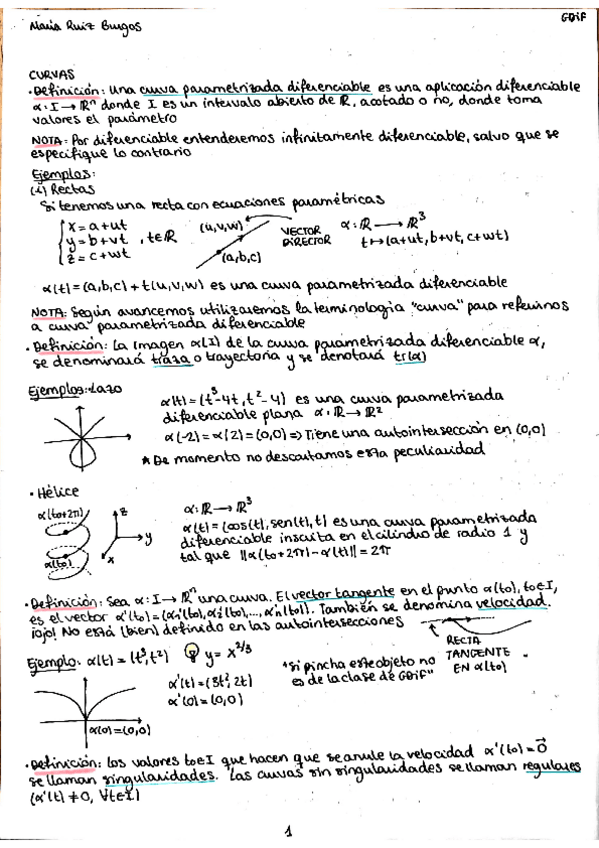 María Ruiz Burgos
GDIF
CURVAS
·Definición: Una curva parametrizada diferenciable es una aplicación diferenciable
α: I → ℝⁿ donde I es un intervalo abierto de ℝ, acotado o no, donde toma
valores el parámetro
NOTA: Por diferenciable entenderemos infinitamente diferenciable, salvo que se
especifique lo contrario
Ejemplos:
(1) Rectas
Si tenemos una recta con ecuaciones paramétricas
{ x = a + ut
y = b + vt , t∈ℝ
z = c + wt
(u,v,w)
(a,b,c)
VECTOR
DIRECTOR
α: ℝ → ℝ³
t ↦ (a+ut, b+vt, c+wt)
α(t) = (a,b,c) + t(u,v,w) es una curva parametrizada diferenciable
NOTA: Según avancemos utilizaremos la terminología "curva" para referirnos
a curva parametrizada diferenciable
·Definición: La imagen α(I) de la curva parametrizada diferenciable α,
se denominará traza o trayectoria y se denotará tr(α)
Ejemplos: Lazo
α(t) = (t³-4t, t²-4) es una curva parametrizada
diferenciable plana α: ℝ → ℝ²
α(-2) = α(2) = (0,0) => Tiene una autointersección en (0,0)
* De momento no descartamos esta peculiaridad
·Hélice
α(t0+2π)
α(t0)
z
y
x
α: ℝ → ℝ³
α(t) = (cos(t), sen(t), t) es una curva parametrizada
diferenciable inscrita en el cilindro de radio 1 y
tal que ||α(t0+2π) - α(t)|| = 2π
·Definición: Sea α: I → ℝⁿ una curva. El vector tangente en el punto α(t0), t0∈I,
es el vector α'(t0) = (α₁'(t0), α₂'(t0), ..., α'n(t0)). También se denomina velocidad.
¡ojo! No está (bien) definido en las autointersecciones
RECTA
TANGENTE
EN α(t0)
Ejemplo: α(t) = (t³, t²) y = x^2/3
α'(t) = (3t², 2t)
α'(0) = (0,0)
"si pincha este objeto no
es de la clase de GDIF"
α(0) = (0,0)
·Definición: Los valores t0∈I que hacen que se anule la velocidad α'(t0) = 0⃗
se llaman singularidades. Las curvas sin singularidades se llaman regulares
(α'(t) ≠ 0, ∀t∈I)
1